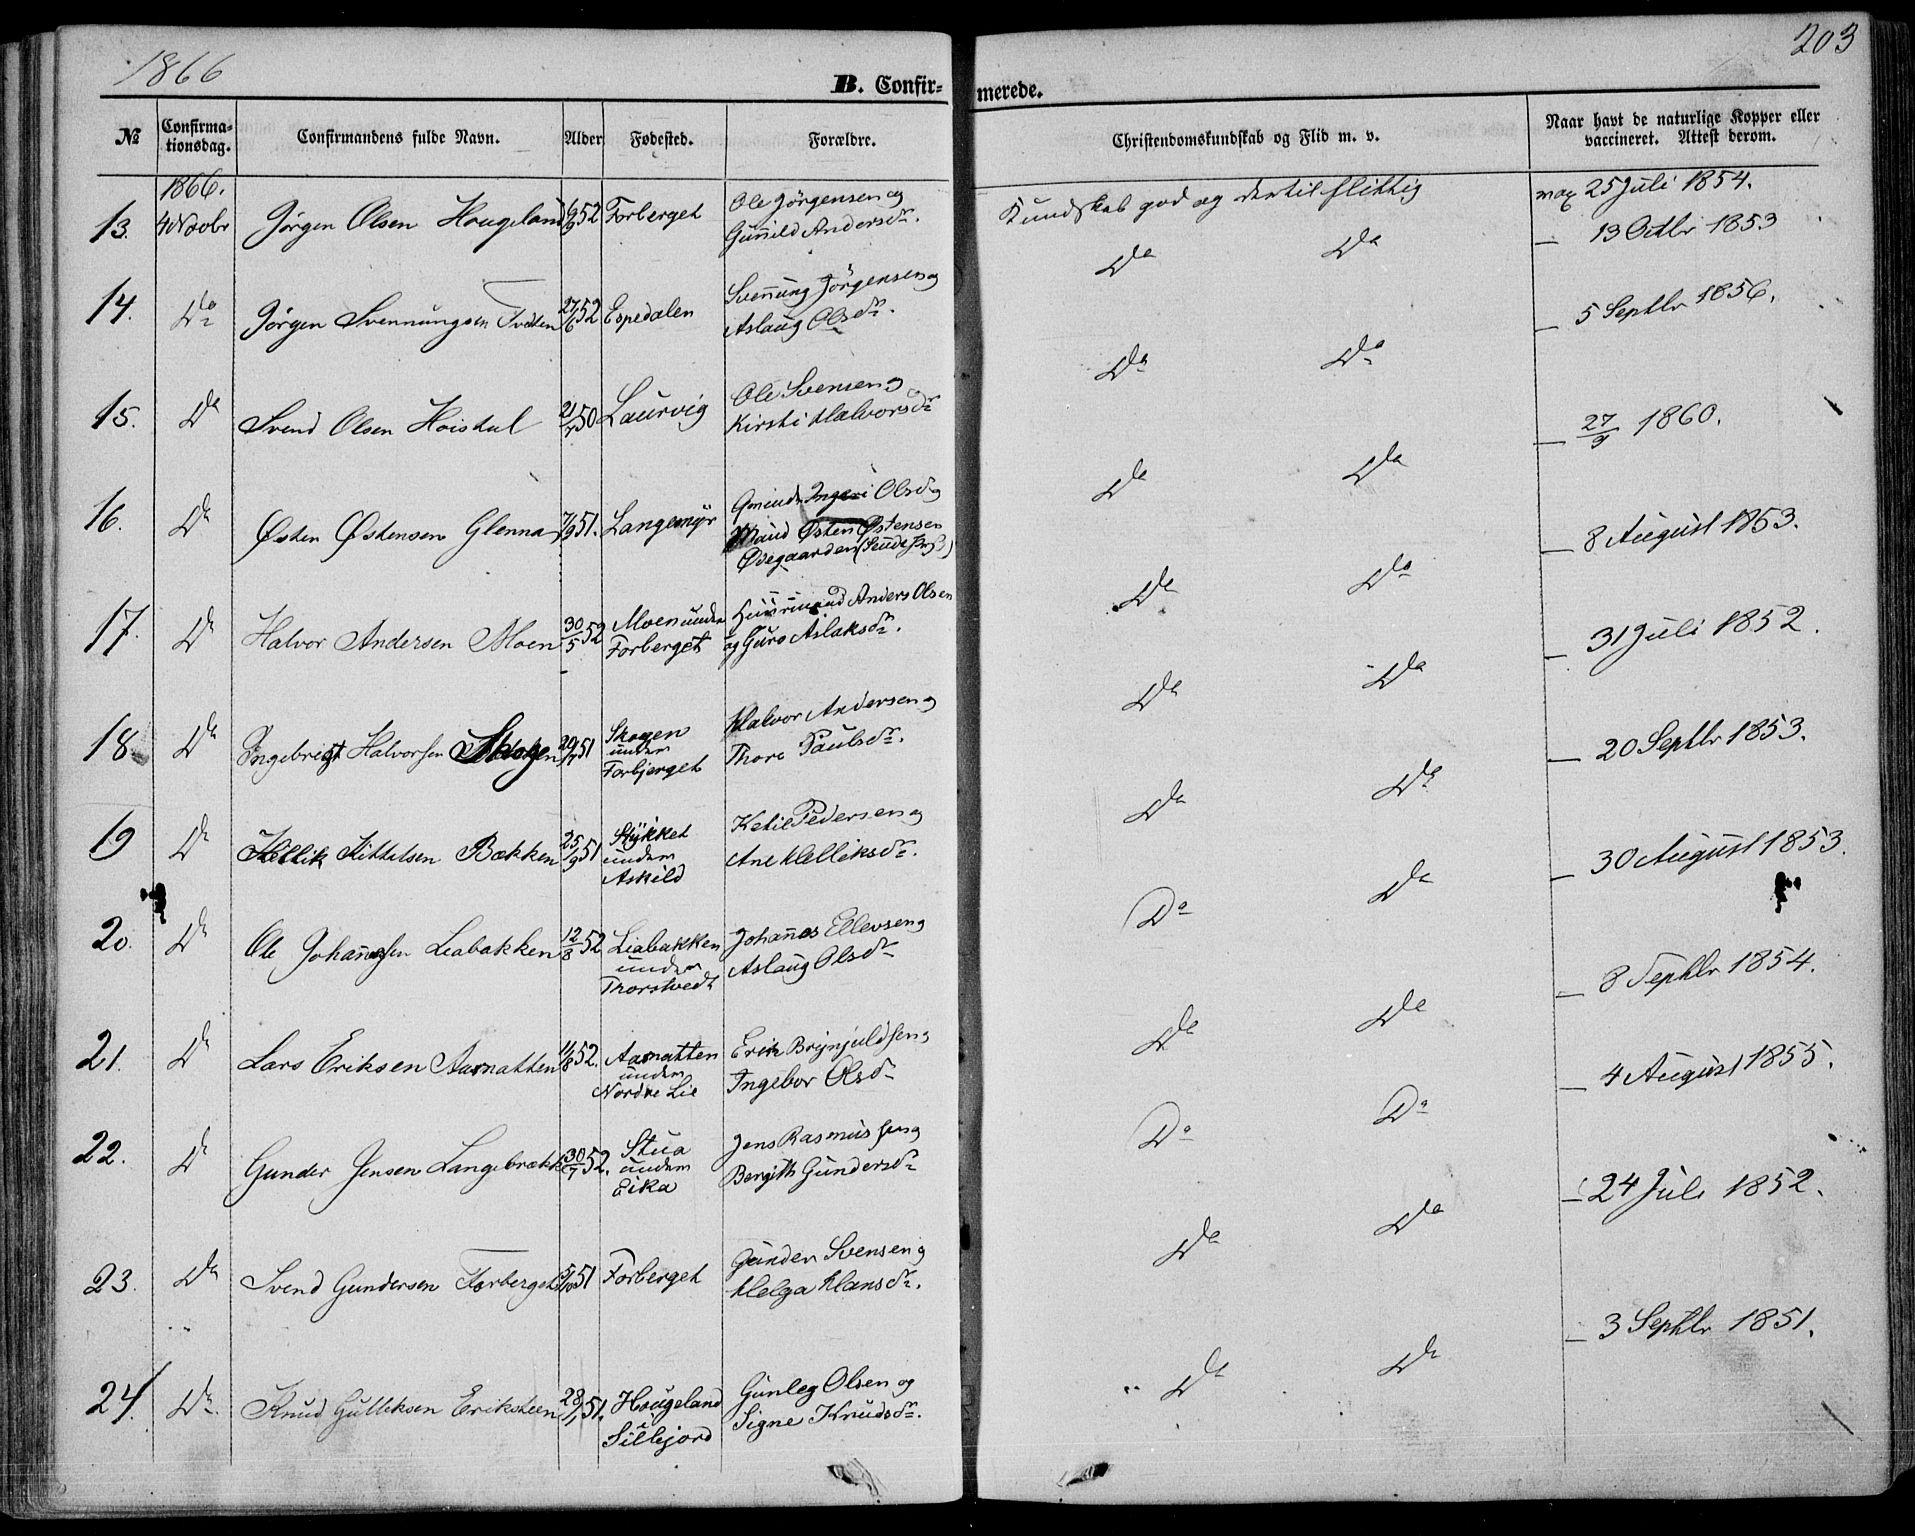 1866
203
B. Confir-
merede.
№
Confirma-
tionsdag.
Confirmandens fulde Navn.
Alder
Fødested.
Forældre.
Christendomskundskab og Flid m. v.
Naar havt de naturlige Kopper eller
vaccineret. Attest derom.
1866.
13. 4 Novbr Jørgen Olsen Hougeland 52 Forberget
Ole Jörgensen og
Gunnild Andersdr.
Kundskab god og dertil flittig
25 Juli 1854.
14. Do Jørgen Svennungsen Tveten 27/6 52 Espedalen
Svennung Jörgensen og
Aslaug Olsdr.
Do Do
– 13 Octbr 1853
15. Do Svend Olsen Hoiskul 50 Laurvig
Ole Svensen og
Kirsti Halvorsdr
Do Do
– 5 Septbr 1856.
16. Do Østen Østensen Glenna 7/9 51. Langemyr
Ingeri Olsd og
Østen Østensen
Ødegaarden
Do Do
– 27/9 1860.
17. Do Halvor Andersen Moen 30/5 52
Moen under
Forberget
Huusmand Anders Olsen
og Guro Aslaksdr.
Do Do
– 8 August 1853.
18 Do Ingebrigt Halvorsen Skogen 51
Skogen
under
Forbjerget
Halvor Andersen og
Thore Paulsdr.
Do Do
– 31 Juli 1852.
19 Do Hellik Kittelsen Bækken 25/9 51
Stykket
under
Askild
Ketil Pedersen og
Ane Helliksdr.
Do Do
– 20 Septbr 1853.
20. Do Ole Johannessen Liabakken 12/8 52
Liabakken
under
Thorstvedt
Johannes Ellevsen og
Aslaug Olsdr
Do Do
– 30 August 1853.
21. Do Lars Eriksen Aasnatten 11/8 52.
Aasnatten
under
Nordre Lie
Erik Brynjuldsen og
Ingebor Olsdr
Do Do
– 8 Septbr 1854.
22. Do Gunder Jensen Langebrække 30/7 52.
Stua
under
Eika
Jens Rasmussen og
Bergith Gundersdr
Do Do
– 4 August 1855.
23. Do Svend Gundersen Forberget 5/10 51 Forberget
Gunder Svensen og
Helga Hansdr.
Do Do
– 24 Juli 1852.
24. Do Knud Gulleksen Eriksteen 28/1 51.
Hougeland
i
Sillejord
Gunleg Olsen og
Signe Knudsdr.
Do Do
– 3 Septbr 1851.